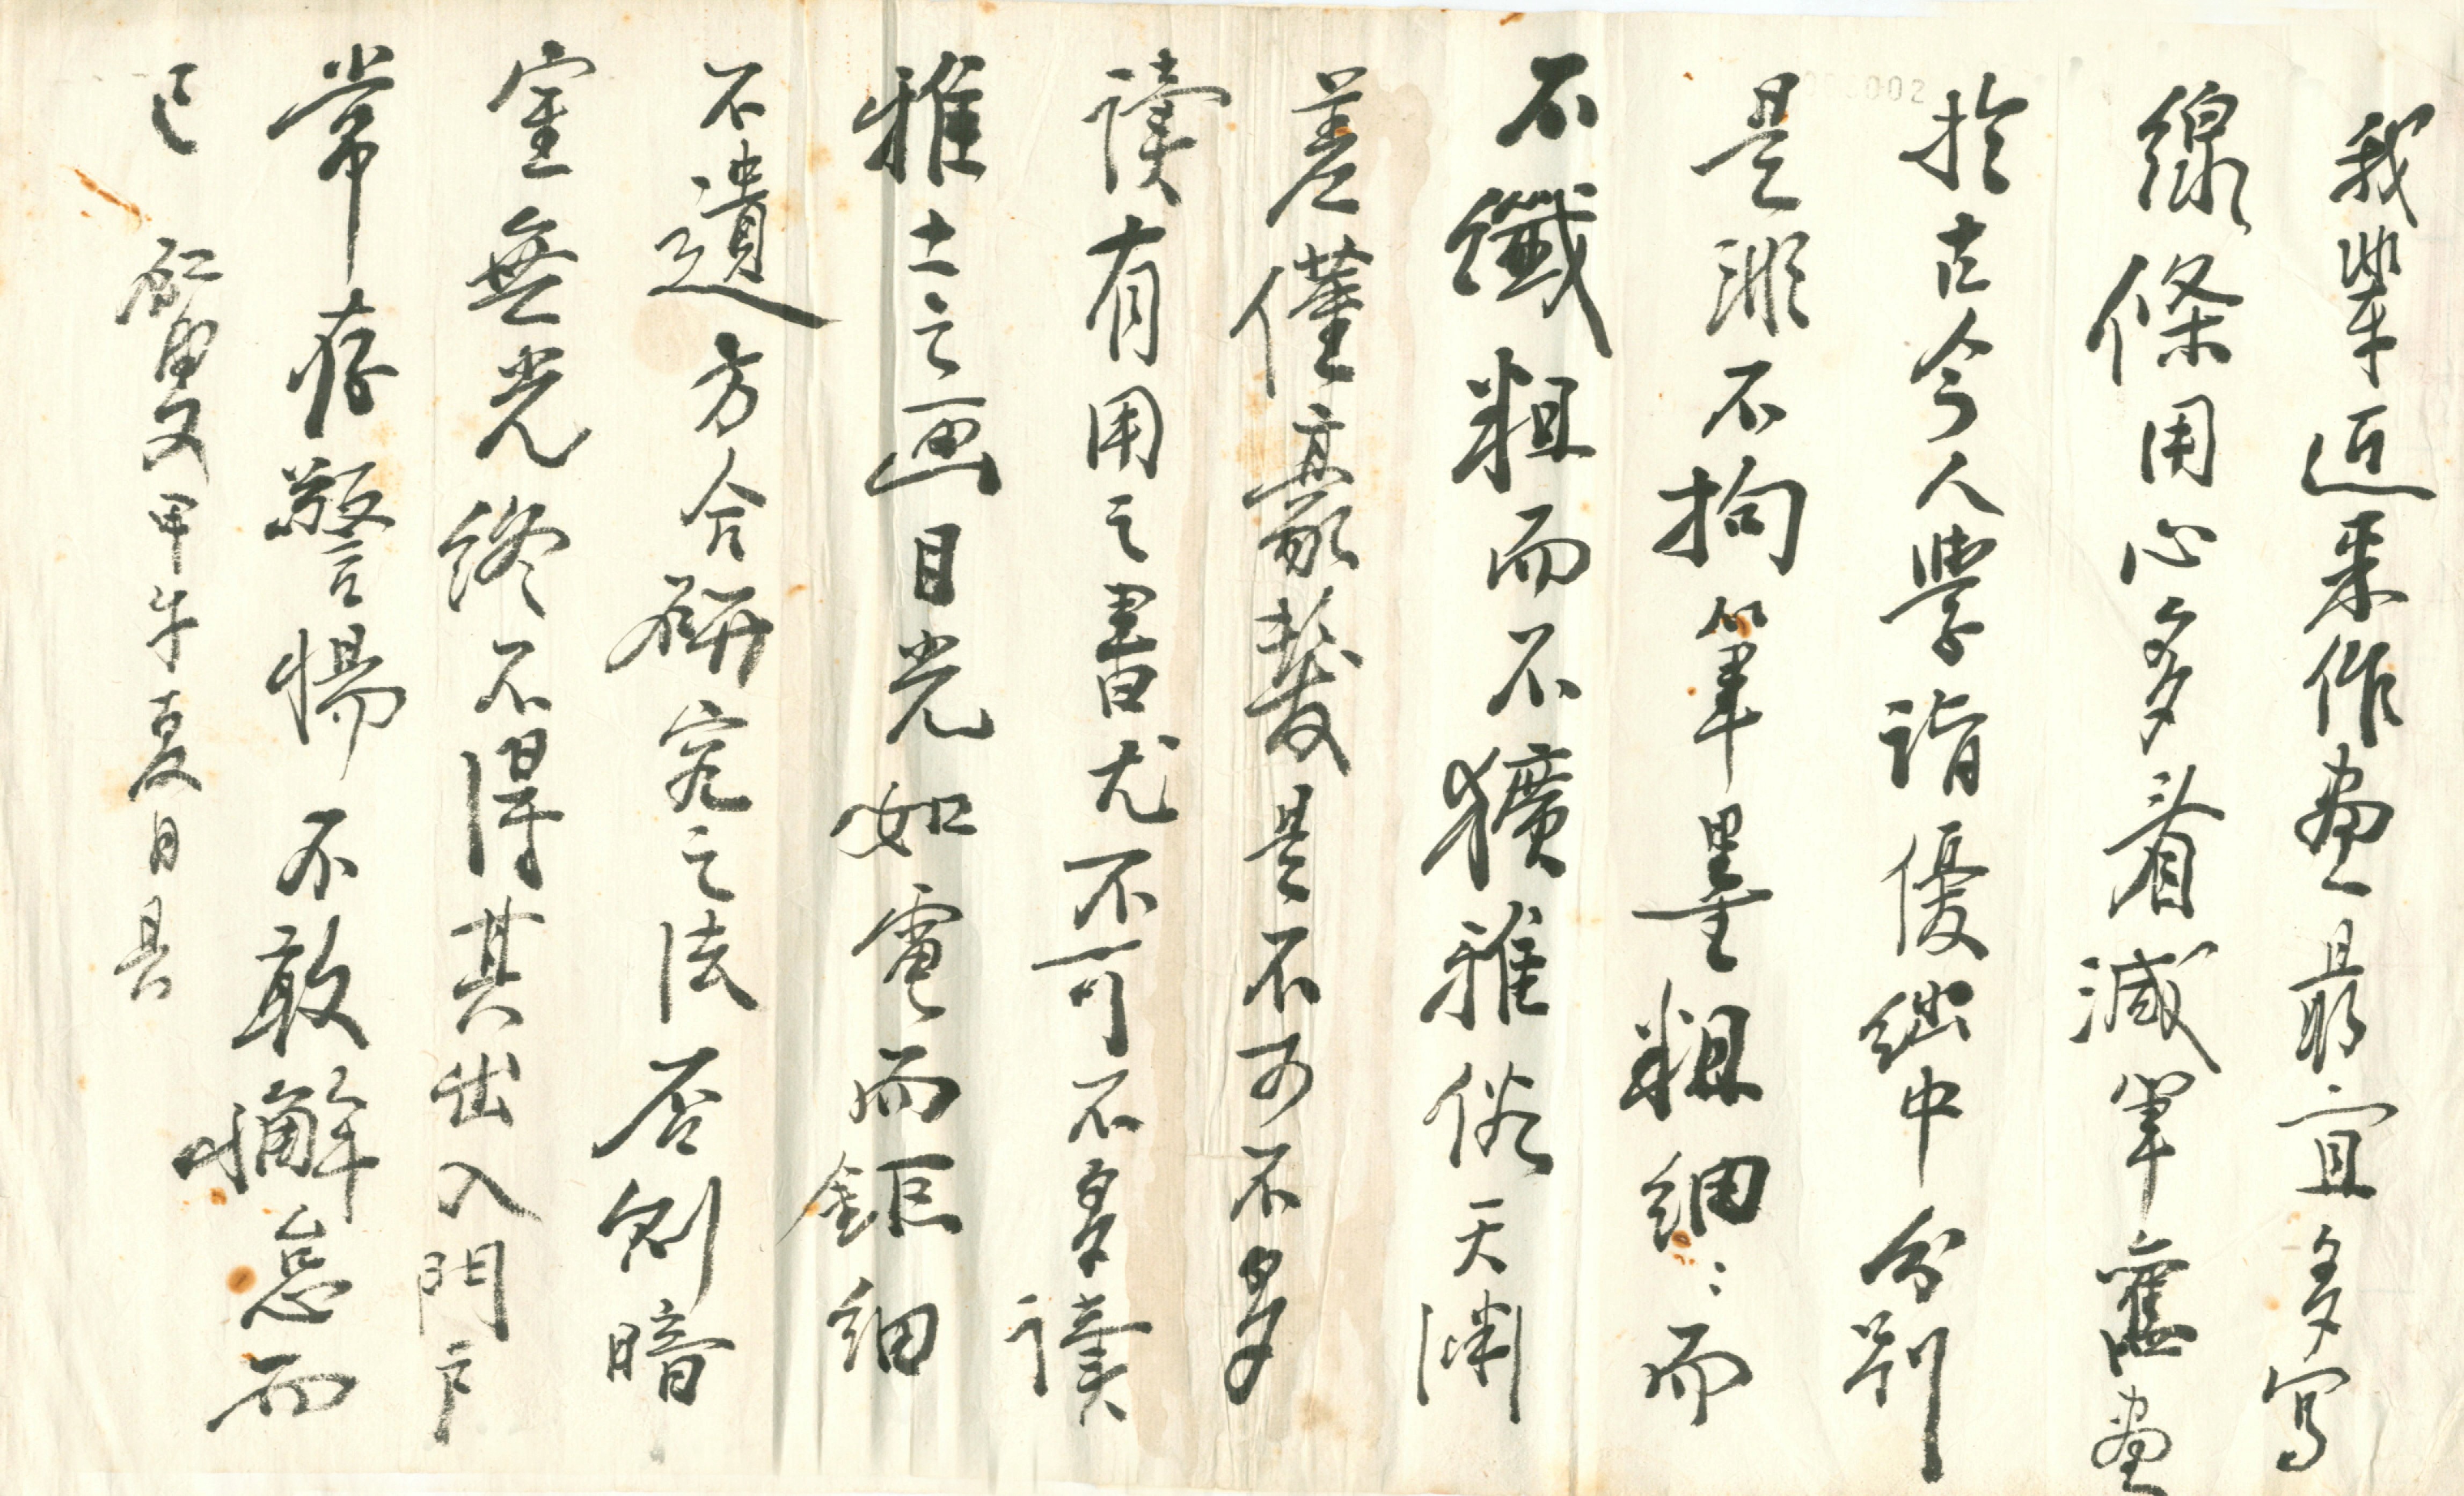 我輩近来作畫最宜多寫
線條用心多看減筆舊畫
扵古今人學詣優絀中分別
是非不拘筆墨粗細〻而
不纖粗而不獷雅俗天渊
差僅豪髮是不可不多
讀有用之書尤不可不多讀
雅士之画目光如電而鉅細
不遺方合研究之法否則暗
室無光終不得其出入門戶
常存警惕不敢懈怠而
已 甲午夏日